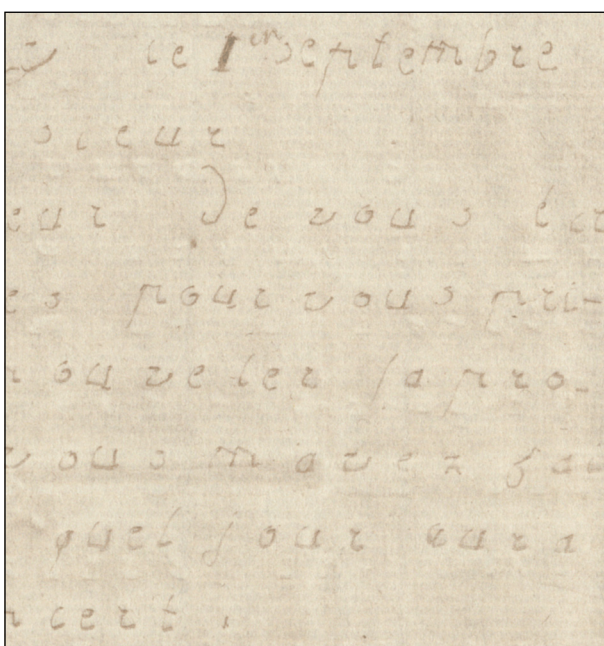 ce 1er septembre
sieur
eur De vous écr
es pour vous pri-
nouveler la pro-
vous m avez fai
quel jour aura
ncert.